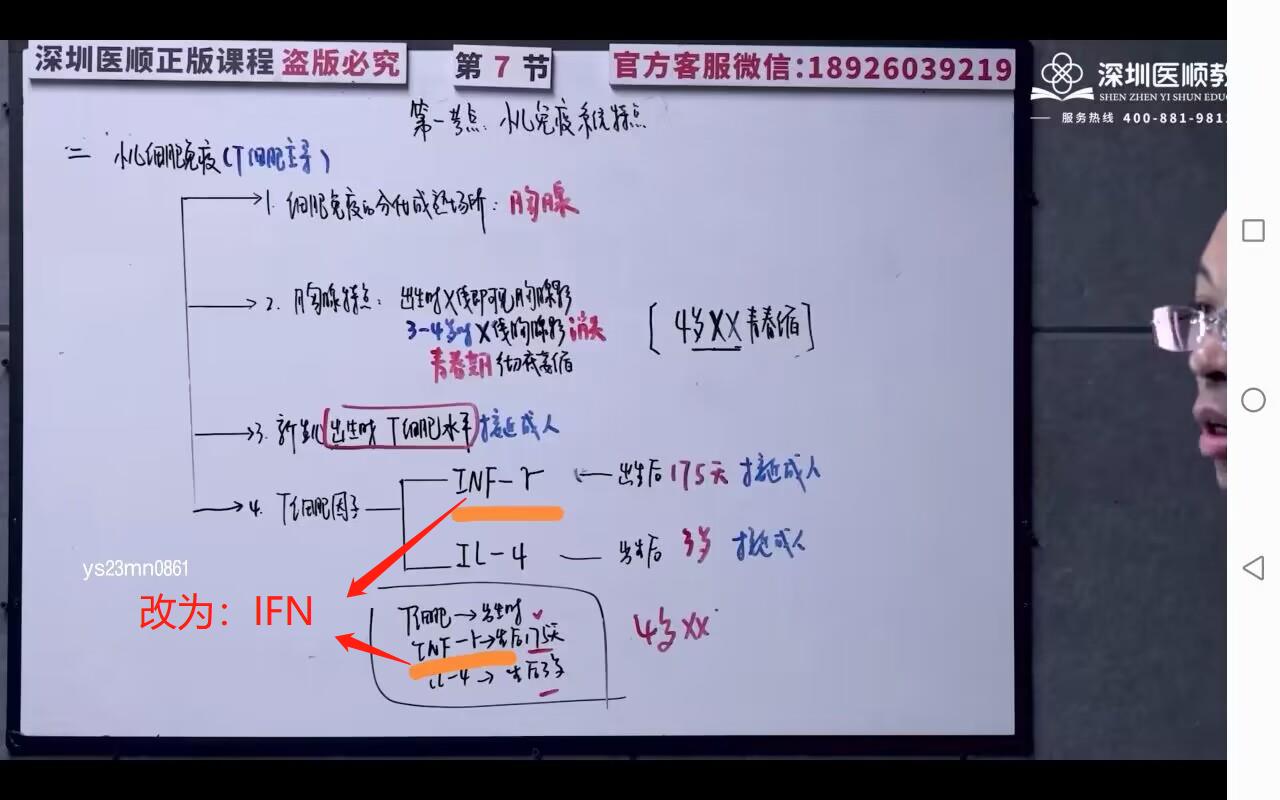 深圳医顺正版课程 盗版必究
第 7 节
官方客服微信:18926039219
深圳医顺教
SHEN ZHEN YI SHUN EDU
服务热线 400-881-981
第一考点:小儿免疫系统特点
二 小儿细胞免疫(T细胞主导)
1. 细胞免疫的分化成熟场所: 胸腺
2. 胸腺特点: 出生时X线即可见胸腺影
3-4岁时X线胸腺影消失
青春期彻底萎缩
[4岁XX青春缩]
3. 新生儿出生时T细胞水平接近成人
4. T细胞因子
INF-r 出生后175天 接近成人
IL-4 出生后 3岁 接近成人
ys23mn0861
改为：IFN
T细胞→出生时
INF-r→生后175天
IL-4→生后3岁
4岁XX